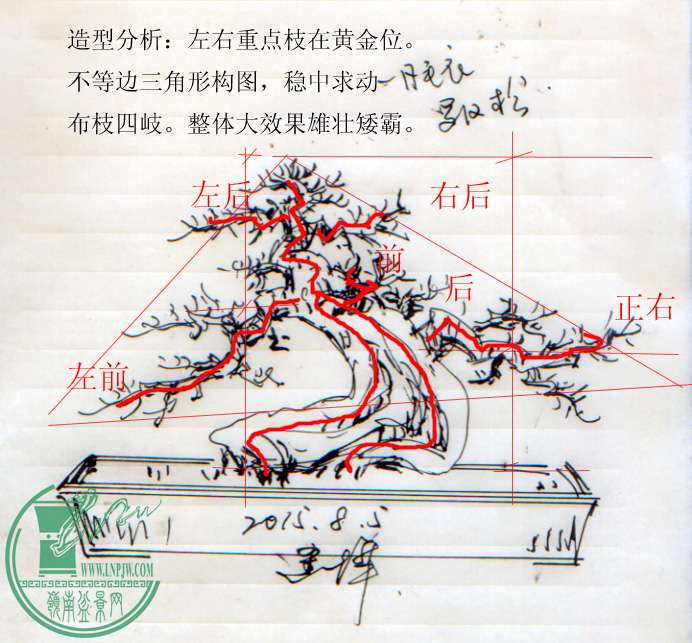 造型分析：左右重点枝在黄金位。
不等边三角形构图，稳中求动
布枝四岐。整体大效果雄壮矮霸。
左后
右后
前
后
正右
左前
2015.8.5
WWW.LNPJW.COM
嶺南盆景网